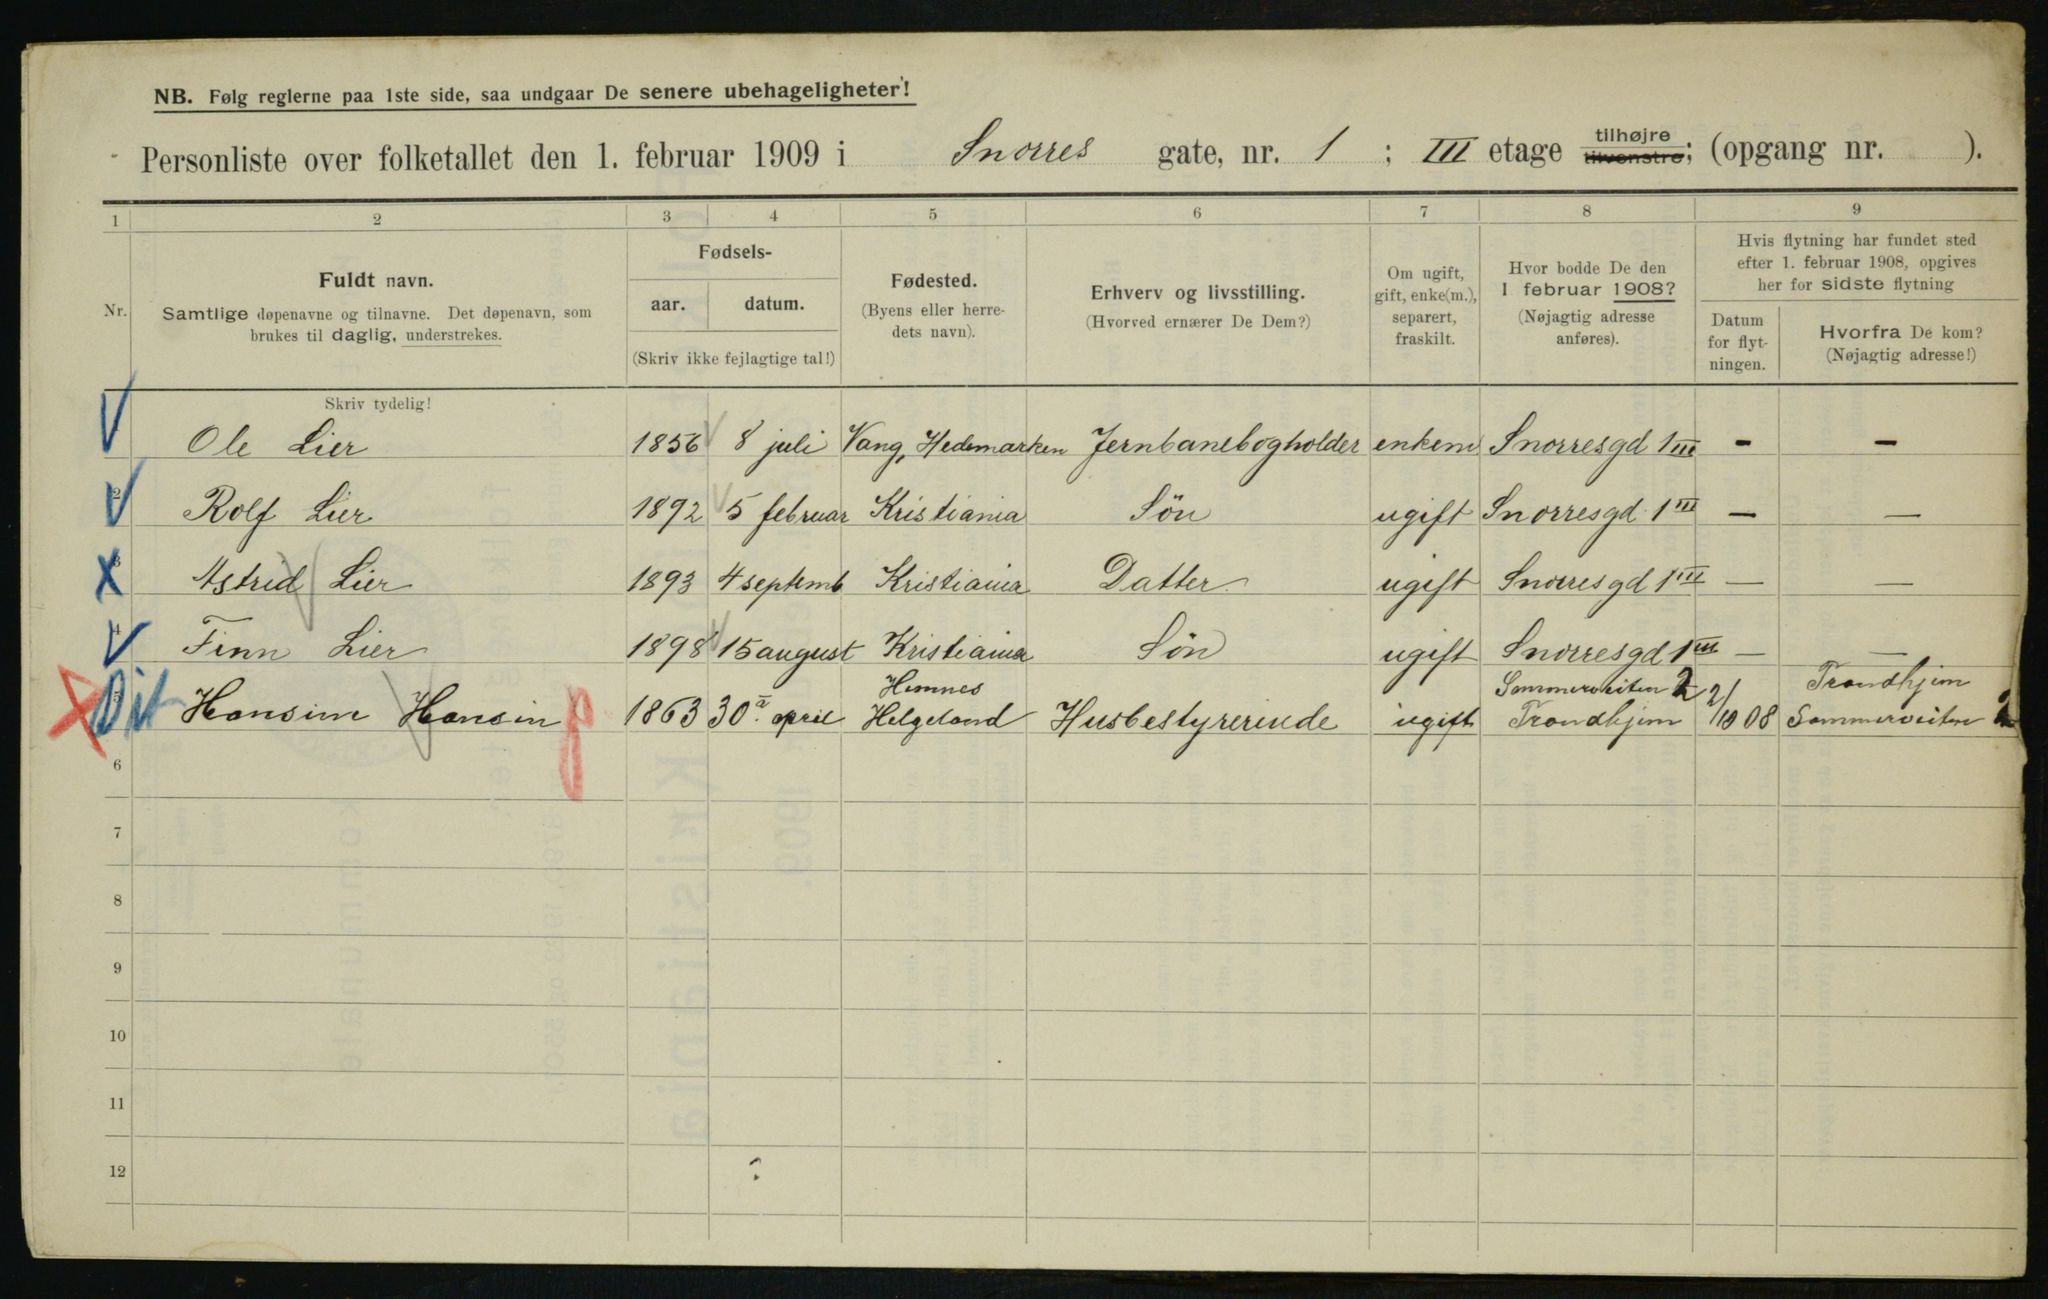 NB. Følg reglerne paa 1ste side, saa undgaar De senere ubehageligheter!
Personliste over folketallet den 1. februar 1909 i Snorres gate, nr. 1 ; III etage tilhøjre tilvenstre; (opgang nr. ).
1 2 3 4 5 6 7 8 9
Nr.
Fuldt navn.
Samtlige døpenavne og tilnavne. Det døpenavn, som
brukes til daglig, understrekes.
Fødsels-
aar. datum.
(Skriv ikke fejlagtige tal!)
Fødested.
(Byens eller herre-
dets navn).
Erhverv og livsstilling.
(Hvorved ernærer De Dem?)
Om ugift,
gift, enke(m.),
separert,
fraskilt.
Hvor bodde De den
1 februar 1908?
(Nøjagtig adresse
anføres).
Hvis flytning har fundet sted
efter 1. februar 1908, opgives
her for sidste flytning
Datum
for flyt-
ningen.
Hvorfra De kom?
(Nøjagtig adresse!)
Skriv tydelig!
Ole Lier 1856 8 juli Vang, Hedemarken Jernbanebogholder enkem Snorresgd 1 III - -
2 Rolf Lier 1892 5 februar Kristiania Søn ugift Snorresgd 1 III — —
3 Astrid Lier 1893 4 septemb Kristiania Datter ugift Snorresgd 1 III — —
4 Finn Lier 1898 15 august Kristiania Søn ugift Snorresgd 1 III — —
Hemnes Sommerveiten 2 Trondhjem
5 Hansine Hansen 1863 30 april Helgeland Husbestyrerinde ugift Trondhjem 2/10 08 Sommerveiten 2
6
7
8
9
10
11
12